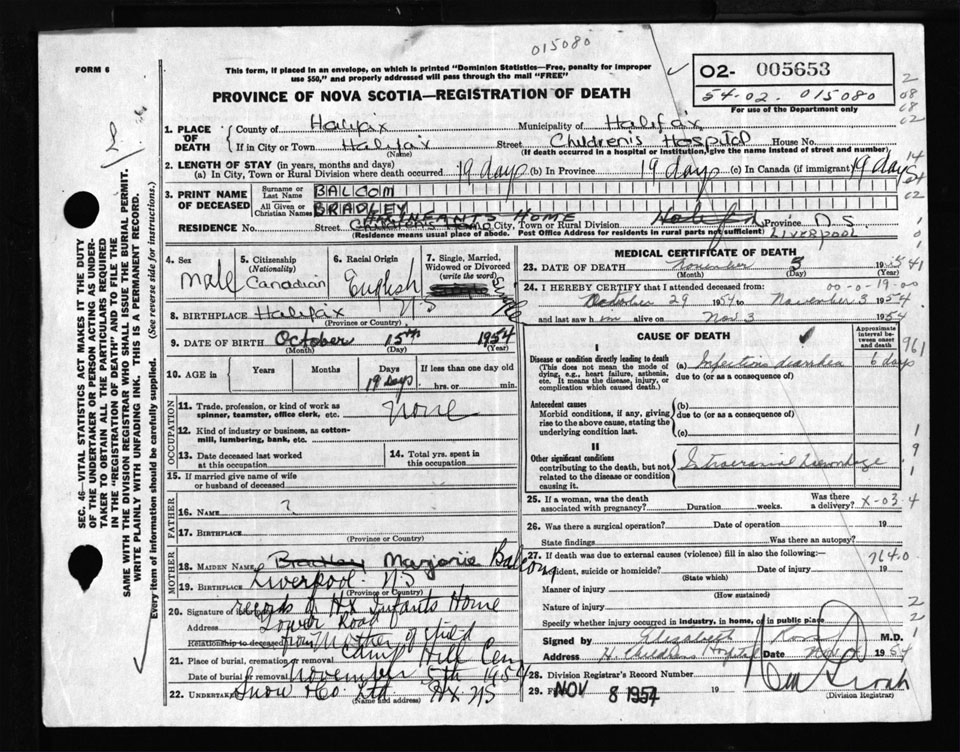 015080
FORM 6
This form, if placed in an envelope, on which is printed "Dominion Statistics—Free, penalty for improper
use $50," and properly addressed will pass through the mail "FREE"
O2- 005653
54-02. 015080
For use of the Department only
PROVINCE OF NOVA SCOTIA—REGISTRATION OF DEATH
1. PLACE OF DEATH County of Halifax Municipality of Halifax
If in City or Town Halifax Street Children's Hospital House No.
(Name) (If death occurred in a hospital or institution, give the name instead of street and number)
2. LENGTH OF STAY (in years, months and days)
(a) In City, Town or Rural Division where death occurred 19 days (b) In Province 19 days (c) In Canada (if immigrant) 19 days
3. PRINT NAME OF DECEASED Surname or Last Name BALCOM
All Given or Christian Names BRADLEY
RESIDENCE No. Street INFANTS HOME City, Town or Rural Division Halifax Province N S
(Residence means usual place of abode. Post Office Address for residents in rural parts not sufficient) LIVERPOOL
4. Sex Male
5. Citizenship (Nationality) Canadian
6. Racial Origin English
7. Single, Married, Widowed or Divorced (write the word) Single
8. BIRTHPLACE Halifax NS
(Province or Country)
9. DATE OF BIRTH October 15th 1954
(Month) (Day) (Year)
10. AGE in Years Months Days 19 Days If less than one day old hrs. or min.
OCCUPATION
11. Trade, profession, or kind of work as spinner, teamster, office clerk, etc. none
12. Kind of industry or business, as cotton-mill, lumbering, bank, etc.
13. Date deceased last worked at this occupation
14. Total yrs. spent in this occupation
15. If married give name of wife or husband of deceased
FATHER
16. NAME ?
17. BIRTHPLACE
(Province or Country)
MOTHER
18. MAIDEN NAME Bradley Marjorie Balcom
19. BIRTHPLACE Liverpool NS
(Province or Country)
20. Signature of informant records of Hx Infants Home
Address Tower Road
Relationship to deceased from Mother of child
21. Place of burial, cremation or removal Camp Hill Cem
Date of burial or removal November 5th 1954
22. UNDERTAKER Snow Co Ltd. HX NS
(Name and address)
MEDICAL CERTIFICATE OF DEATH
23. DATE OF DEATH November 3 1954
(Month) (Day) (Year)
00-0-19-00
24. I HEREBY CERTIFY that I attended deceased from:
October 29 1954 to November 3 1954
and last saw him alive on Nov 3 1954
CAUSE OF DEATH
Approximate interval between onset and death
I
Disease or condition directly leading to death
(This does not mean the mode of dying, e.g., heart failure, asthenia, etc. It means the disease, injury, or complication which caused death.)
(a) Infectious diarrhea 6 days
due to (or as a consequence of)
961
Antecedent causes
Morbid conditions, if any, giving rise to the above cause, stating the underlying condition last.
(b)
due to (or as a consequence of)
(c)
II
Other significant conditions contributing to the death, but not related to the disease or condition causing it.
Intracranial hemorrhage
25. If a woman, was the death associated with pregnancy? Duration weeks. Was there a delivery? X-03.4
26. Was there a surgical operation? Date of operation 19
State findings Was there an autopsy?
27. If death was due to external causes (violence) fill in also the following:— 764.0
Accident, suicide or homicide? Date of injury 19
(State which)
Manner of injury
(How sustained)
Nature of injury
Specify whether injury occurred in industry, in home, or in public place
Signed by Elizabeth M.D.
Address H. Childrens Hospital Date Nov 1954
28. Division Registrar's Record Number
29. NOV 8 1954 19
(Division Registrar)
SEC. 46—VITAL STATISTICS ACT MAKES IT THE DUTY
OF THE UNDERTAKER OR PERSON ACTING AS UNDER-
TAKER TO OBTAIN ALL THE PARTICULARS REQUIRED
IN THE "REGISTRATION OF DEATH" AND TO FILE THE
SAME WITH THE DIVISION REGISTRAR WHO SHALL ISSUE THE BURIAL PERMIT.
WRITE PLAINLY WITH UNFADING INK. THIS IS A PERMANENT RECORD.
Every item of information should be carefully supplied. (See reverse side for instructions.)